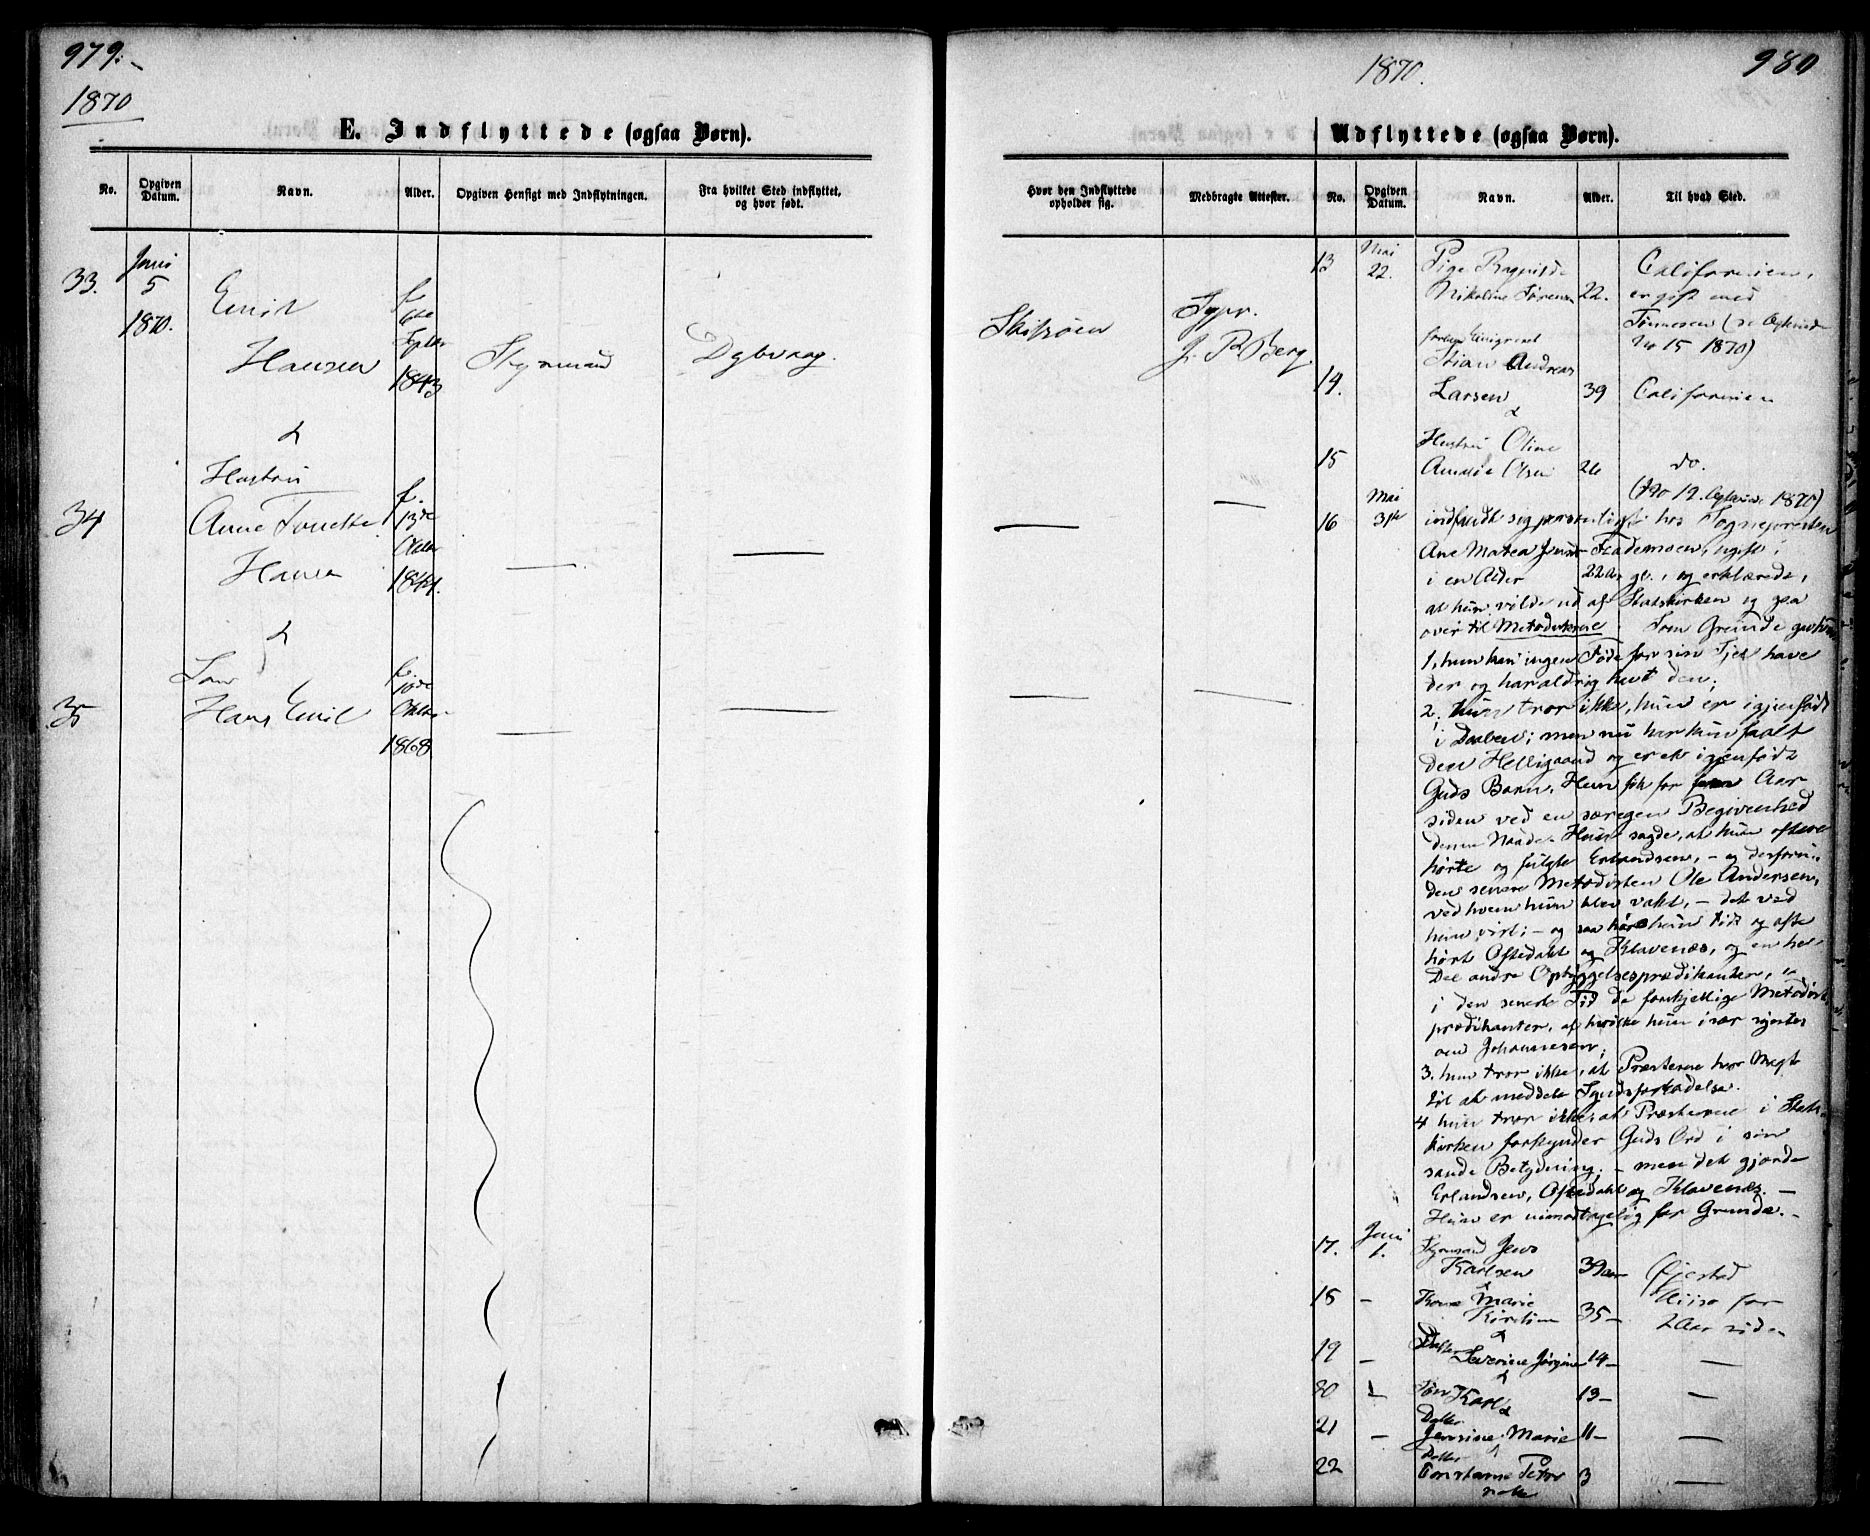 979.
1870
E. Indflyttede (ogsaa Børn).
No.
Opgiven Datum.
Navn.
Alder.
Opgiven Hensigt med Indflytningen.
Fra hvilket Sted indflyttet, og hvor født.
33.
Juni
5
1870.
Emil
Hansen
f.
6te
Septbr
1843
Styrmand
Dybvaag
&
Hustru
34
Anne Tonette
Hansen
f.
13de
Oktbr
1844.
&
Søn
35
Hans Emil
f.
10de
Oktbr
1868
980
1870.
Udflyttede (ogsaa Børn).
Hvor den Indflyttede opholder sig.
Medbragte Attester.
No.
Opgiven Datum.
Navn.
Alder.
Til hvad Sted.
Sogpr.
J. R Berg
13
Mai
22.
Pige Ragnilde
Nikoline Sørensen
22.
Californien,
er gift med
Tønnesen (se
No 15 1870)
14.
Stian Andreas
Larsen
39
Californien
&
15
Hustru Oline
Amalie Olsen
26
do.
1870)
16
Mai
31te
indfandt sig personligt hos Sognepresten
Ane Matea
i en Alder 22 Aar gl., og erklærede,
at hun vilde ud af Statskirken og gaa
over til Metodisterne. Som Grunde gav hun
1, hun kan ingen Føde for sin Sjel have
der og har aldrig havt den;
2, hun tror ikke, hun er igjenfødt
i Daaben; men nu har hun faaet
den Helligaand og er et igjenfødt
Guds Barn. Hun fik for Aar
siden ved en særegen Begivenhed
denne Naade. Hun sagde, at hun oftere
hørte og fulgte Erlandsen, - og
den senere Metodisten Ole Andersen,
ved hvem hun blev vakt, - det ved
hun vist; - og saa har hun tidt og ofte
hørt Oftedahl og Klavenæs, og en hel
Del andre Opbyggelsesprædikanter,
i den seneste Tid de forskjellige Metodist
prædikanter, af hvilke hun især syntes
om Johannesen;
3. hun tror ikke, at Præsterne har Magt
til at meddele Syndsforladelse.
4 hun tror ikke, at Præsterne i Stats
kirken forkynder Guds Ord i sin
sande Betydning; - men det gjorde
Erlandsen, Oftedahl og Klavenæs. -
Hun er uimodtagelig for Grunde. -
17.
Juni
1.
Styrmand Jens
Karlsen
39 Aar
Øjestad
&
18
-
Kone Marie
Kirstine
35 -
for
2 Aar siden
&
19
-
Datter
Severine Jørgine
14 -
&
20
-
Søn Karl &
13 -
21
-
Datter
Jensine Marie
11 -
&
22
Datter
Constanse Petro
nelle
3